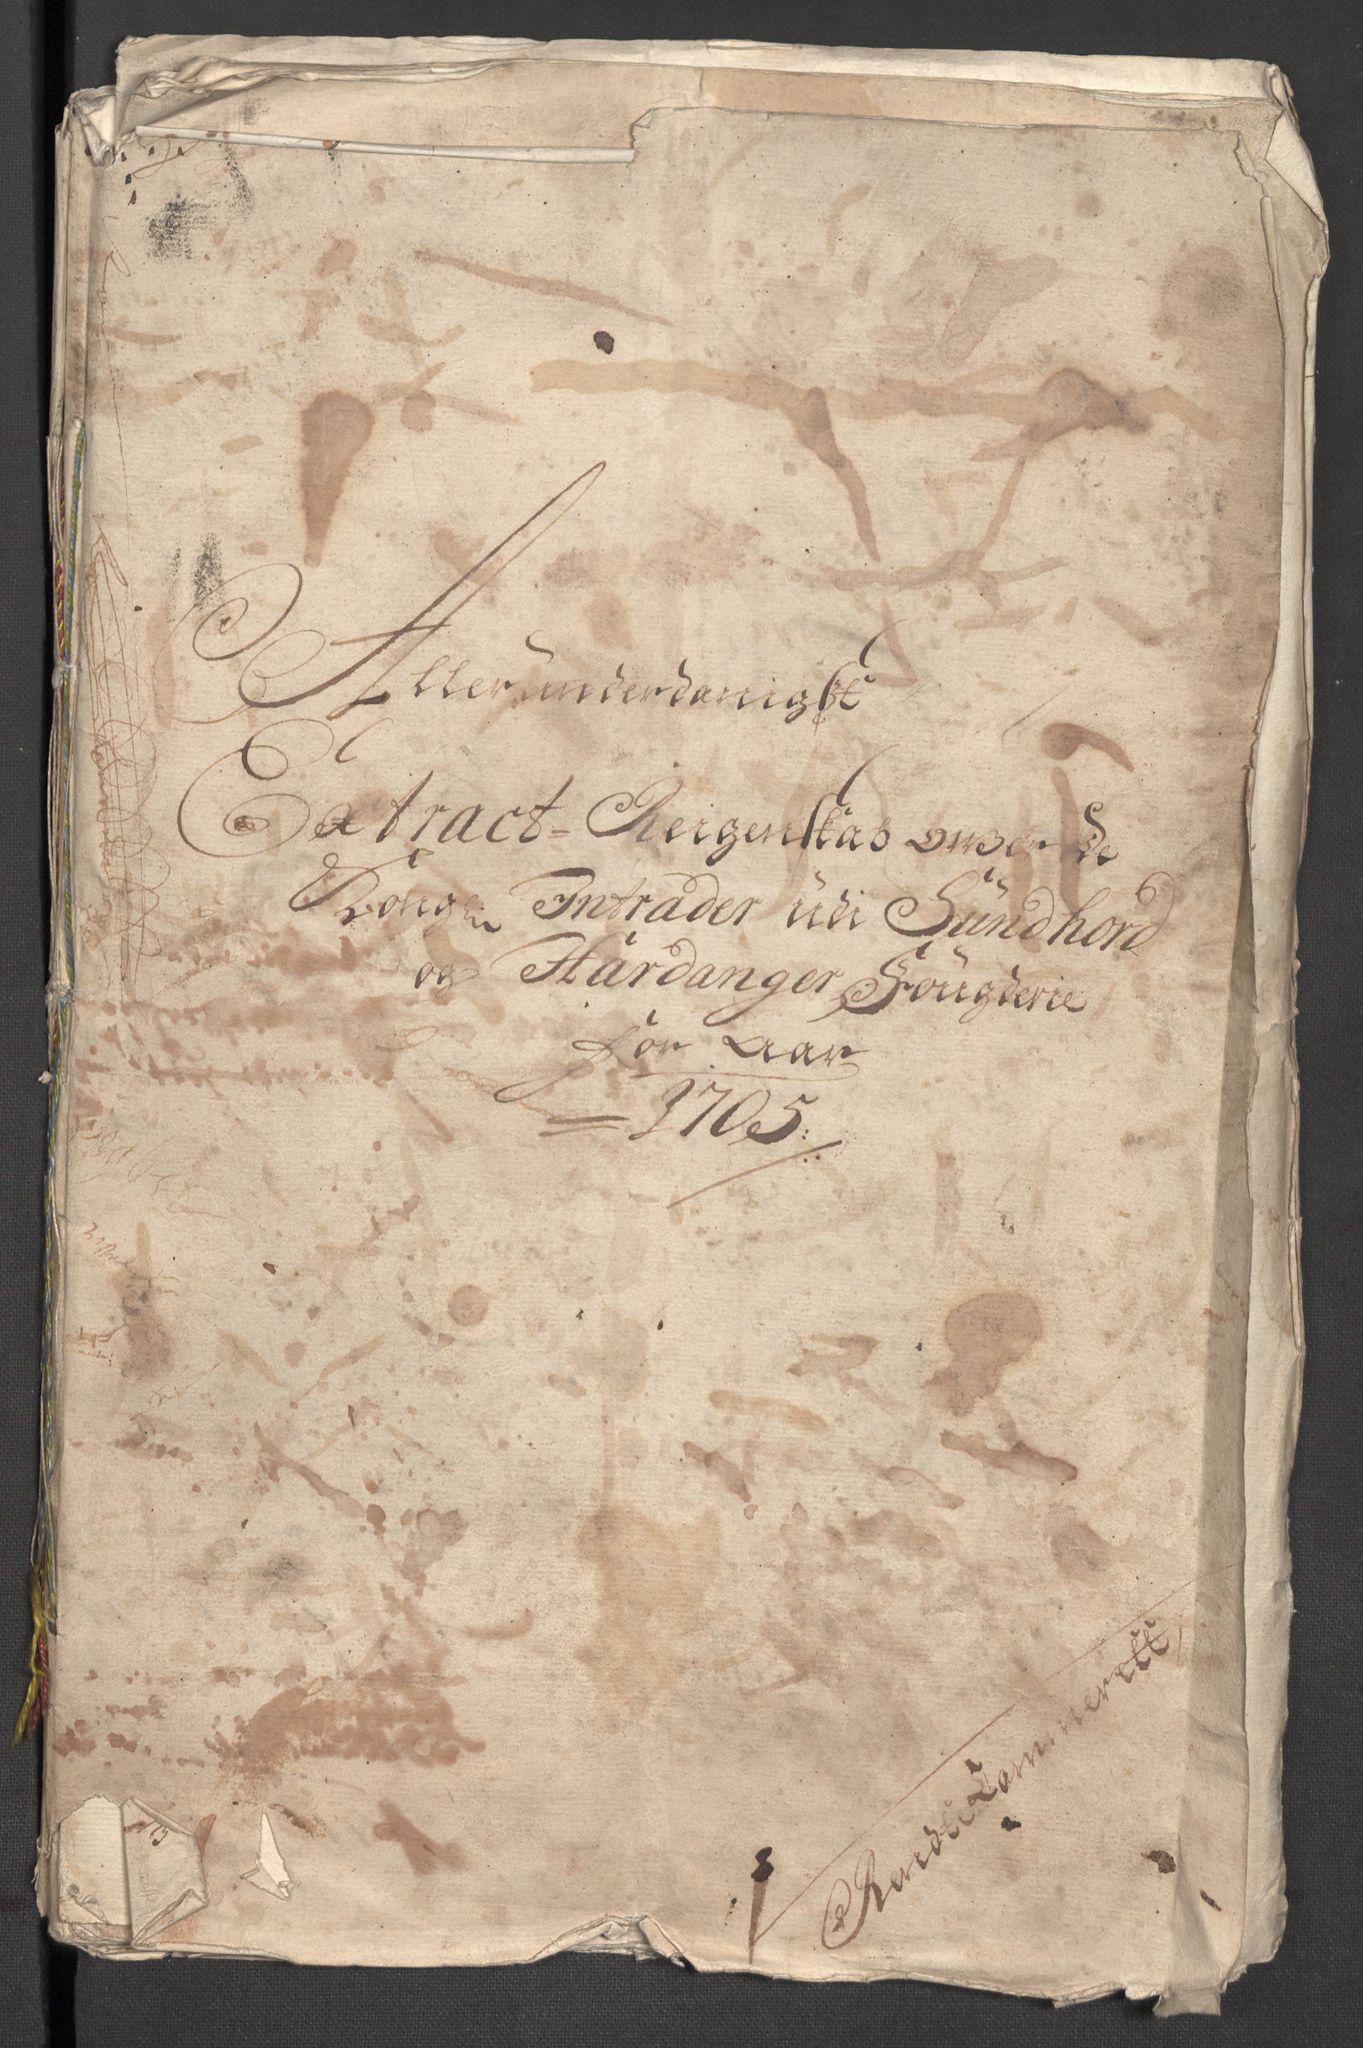 Alleründerdanigst
Extract-Reigenskab ower de
Kongl: Intrader udi Sündhord
og Hardanger Fougderie
for Aar
1705.